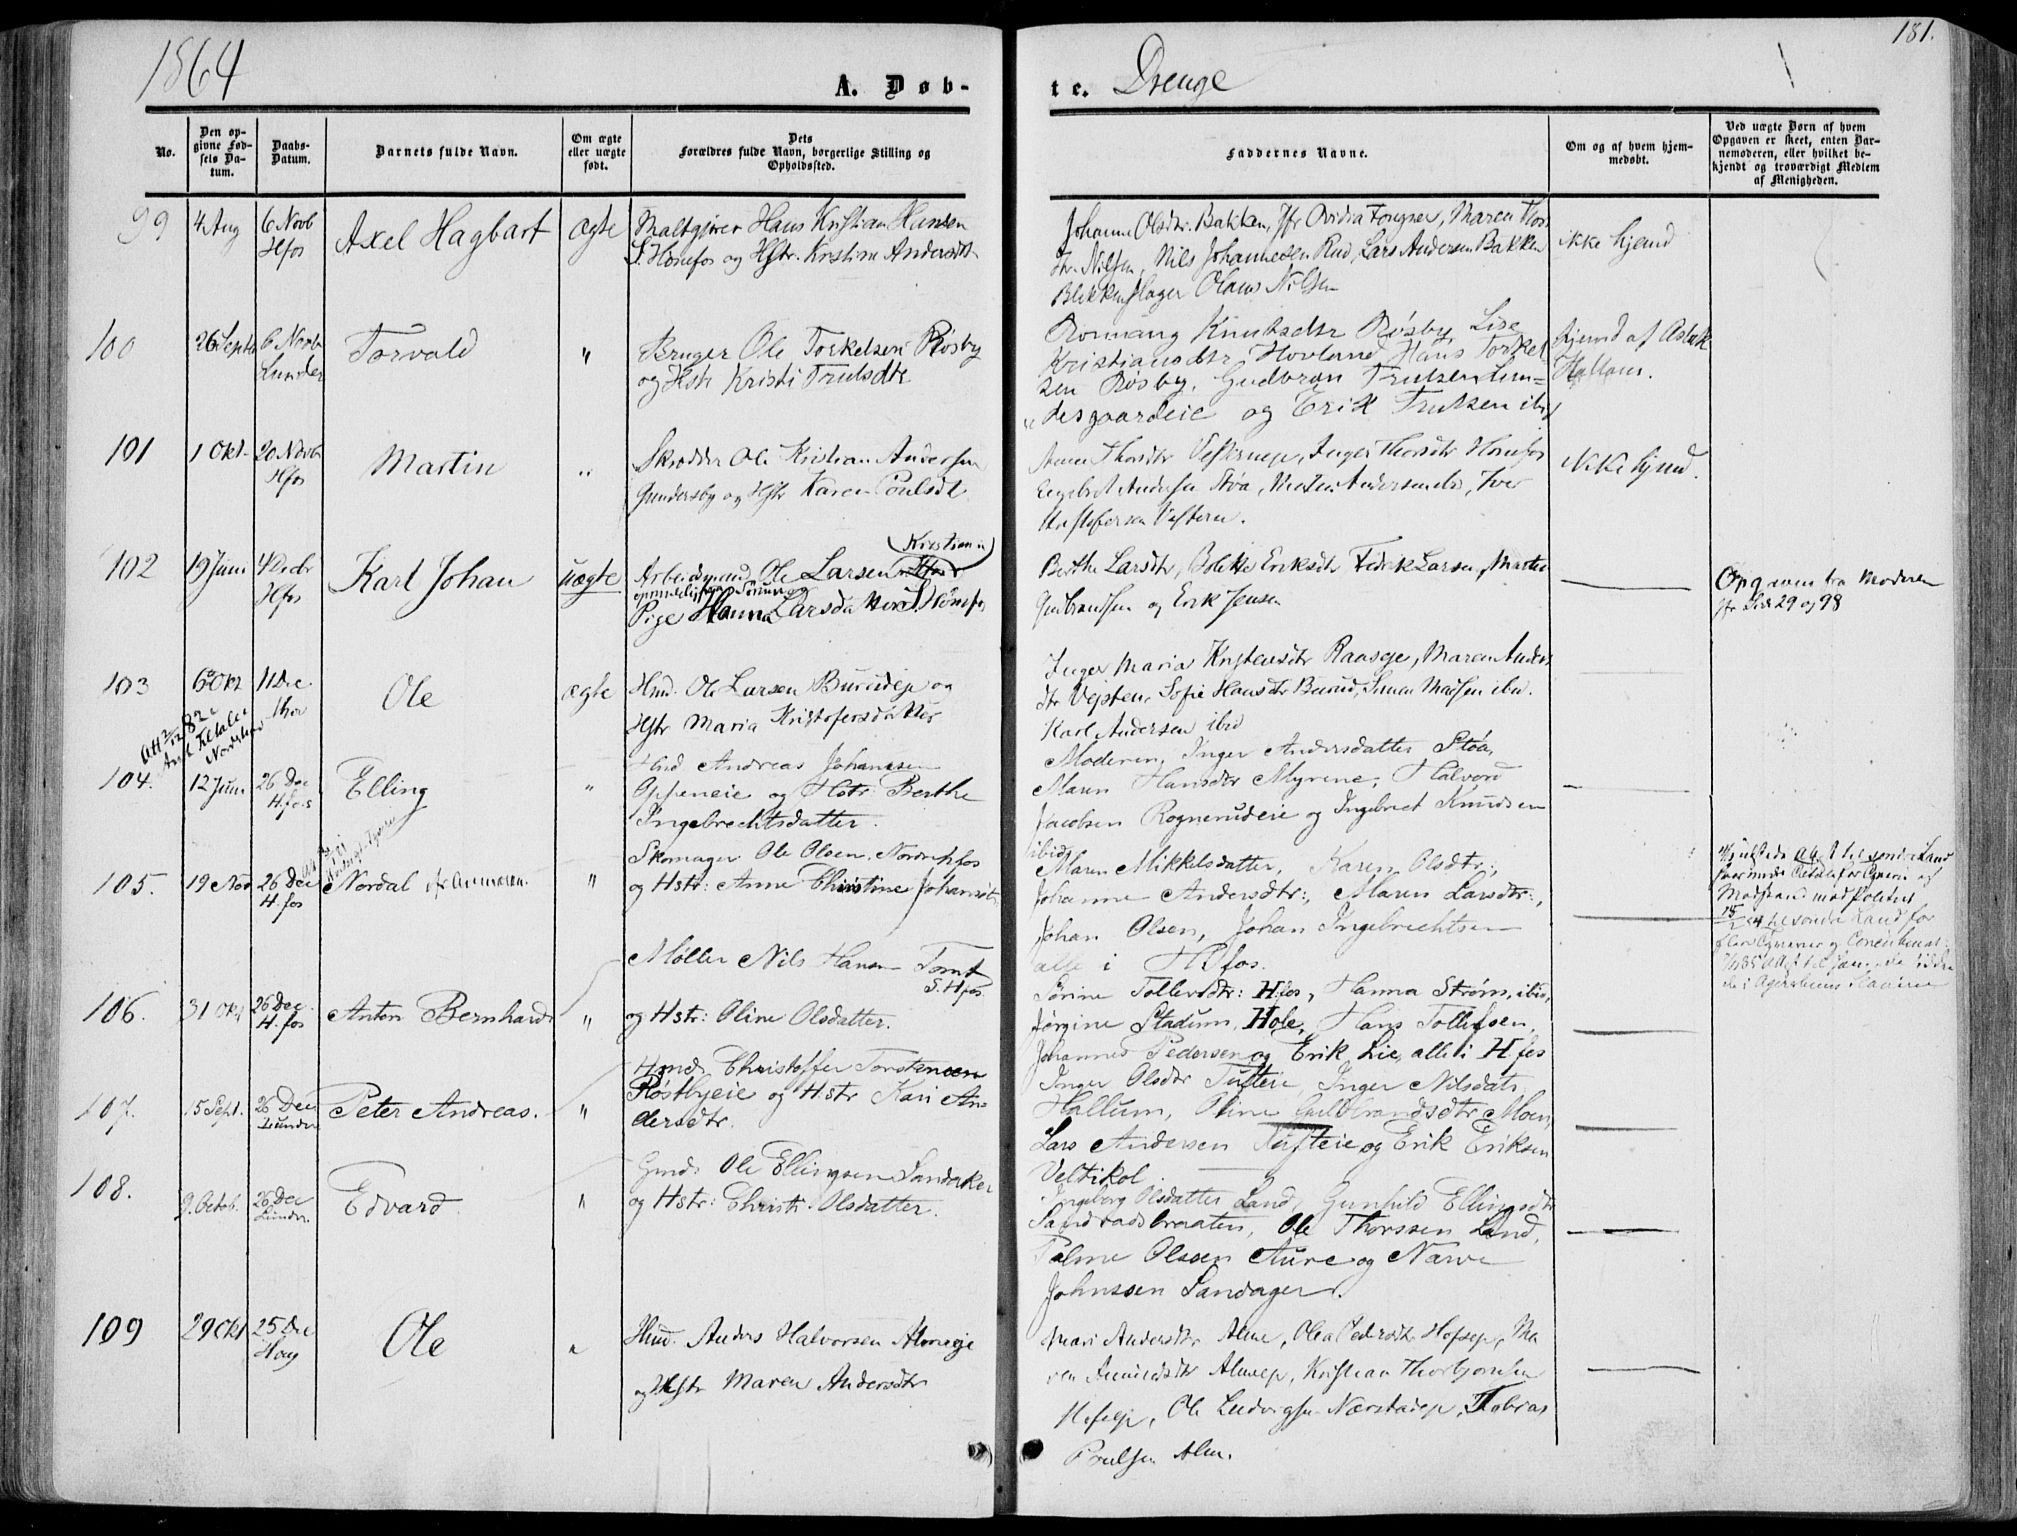 1864
181.
A. Døb-
te. Drenge
No.
Den op-
givne Fød-
sels Da-
tum.
Daabs-
Datum.
Barnets fulde Navn.
Om ægte
eller uægte
født.
Dets
Forældres fulde Navn, borgerlige Stilling og
Opholdssted.
Faddernes Navne.
Om og af hvem hjem-
medøbt.
Ved uægte Børn af hvem
Opgaven er skeet, enten Bar-
nemoderen, eller hvilket be-
kjendt og troværdigt Medlem
af Menigheden.
99
4 Aug
6 Novb
Hfos
Axel Hagbart
ægte
Maltgjører Hans Kristian Hansen
S. Hønefos og Hstr. Kristine Andersdtr
Johanne Olsdtr. Bakken, Jfr Ovidia Fougner, Maren Thors
dtr. Nilsen, Nils Johannesen Rud, Lars Andersen Bakken
Blikkenslager Olaus Nilsen
ikke hjemd
100
26 Septb
6 Novb
Lunder
Torvald
"
Bruger Ole Torkelsen Røsby
og Hstr Kristi Trulsdtr.
Knutsdtr Røsby, Lise
Kristiansdtr Hovland, Hans Torkel
sen Røsby, Gudbran Trulsen Lun=
desgaardeie og Erik Trulsen ibid
hjemd af Aslak
Hallum.
101
1 Okt
20 Novb
Hfos
Martin
"
Skrædder Ole Kristian Andersen
Gundersby og Hstr Karen Poulsdt.
Thorsdtr Vesternep, Inger Thorsdtr Hønefos
Engebret Andersen Støa, Andersen ibd, Iver
Kristofersen Vestern.
ikke hjemd.
102
19 Juni
4 Decbr
Hfos
Karl Johan
uægte
(Kristiania)
Arbeidsmand Ole Larsen
Pige Hanna Larsda Hønefos
Berthe Larsdtr, Bolette Eriksdtr Fredrik Larsen, Martin
Gulbrandsen og Erik Jensen
Opgaven fra Moderen
jfr. Side 29 og 98
103
6 Okt
11 Dec
Ole
ægte
Hmd. Ole Larsen Burudeje og
Hstr Maria Kristofersdatter
Inger Maria Kristensdtr Raaseje, Maren Anders
dtr Vegsten, Sofie Hansdtr Burud, Simen Madsen ibd.
Karl Andersen ibid
104.
12 Juni
26 Dec
H.fos
Elling
"
Hmd Andreas Johannesen
Oppeneie og Hstr. Berthe
Ingebrechtsdatter.
Moderen, Inger Andersdatter Støa,
Maren Hansdtr Myrene, Halvord
Jacobsen Rogneruddeie og Ingebret Knudsen
ibid.
105.
19 Nov
26 Dec
H.fos
Nordal
"
Skomager Ole Olsen, Nordre Hfos
og Hstr: Anne Christine Johansdtr
Maren Mikkelsdatter, Karen Olsdtr.,
Johanne Andersdtr:, Maren Larsdtr:,
Johan Olsen, Johan Ingebrechtsen
alle i Hfos.
106.
31 Okt
26 Dec
H.fos
Anton Bernhard
"
Møller Nils Hansen Tomt
S. Hfos.
og Hstr: Oline Olsdatter.
Sørine Tollevsdtr: H.fos, Hanna Strøm, ibid,
Jørgine Stadum, Hole, Hans Tollefsen,
Johannes Pedersen og Erik Lie, alle i H.fos
107.
15 Sept.
26 Dec
Lunder
Peter Andreas.
"
Hmd. Christoffer Torstensen
Røsbyeie og Hstr Kari An-
dersdtr.
Inger Olsdtr Tufteie, Inger Nilsdatr
Hallum, Oline Gulbrandsdtr Moen,
Lars Andersen Tufteie og Erik Eriksen
Veltikol
108.
9. Octob.
26 Dec
Lunder.
Edvard
"
Gmd. Ole Ellingsen Sandaker
og Hstr: Christi Olsdatter.
Ingeborg Olsdatter Land, Gunhild Ellingsdtr
Sandvadsbraaten, Ole Thorssen Land,
Palme Olssen Aure og Narve
Johnssen Sandager.
109
29 Okt
25 Dec
Haug
Ole
"
Hmd. Anders Halvorsen Almeje
og Hstr Maren Andersdtr
Mari Andersdtr Alme, Olea Pedersdtr Hofsep, Ma
ren Amundsdtr Almep, Kristian Thorbjørnsen
Hofsep, Ole Ludvigsen Nærstadep, Tobias
Poulsen Alm.